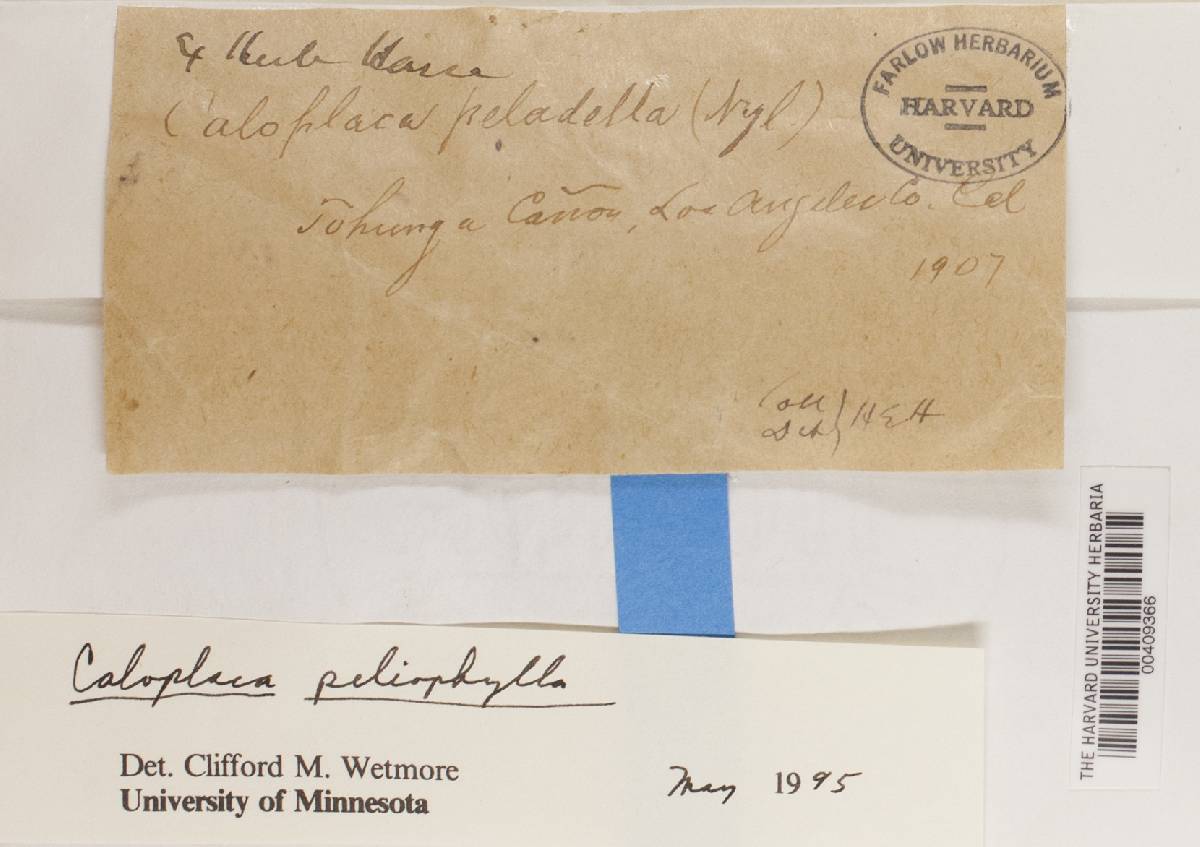 Ex Herb. Hasse
Caloplaca peladella (Nyl.)
Tohunga Cañon, Los Angeles Co. Cal
1907
Coll
Det } HEH
FARLOW HERBARIUM
HARVARD
UNIVERSITY
THE HARVARD UNIVERSITY HERBARIA
00409366
Caloplaca peliophylla
Det. Clifford M. Wetmore
University of Minnesota
May 1995